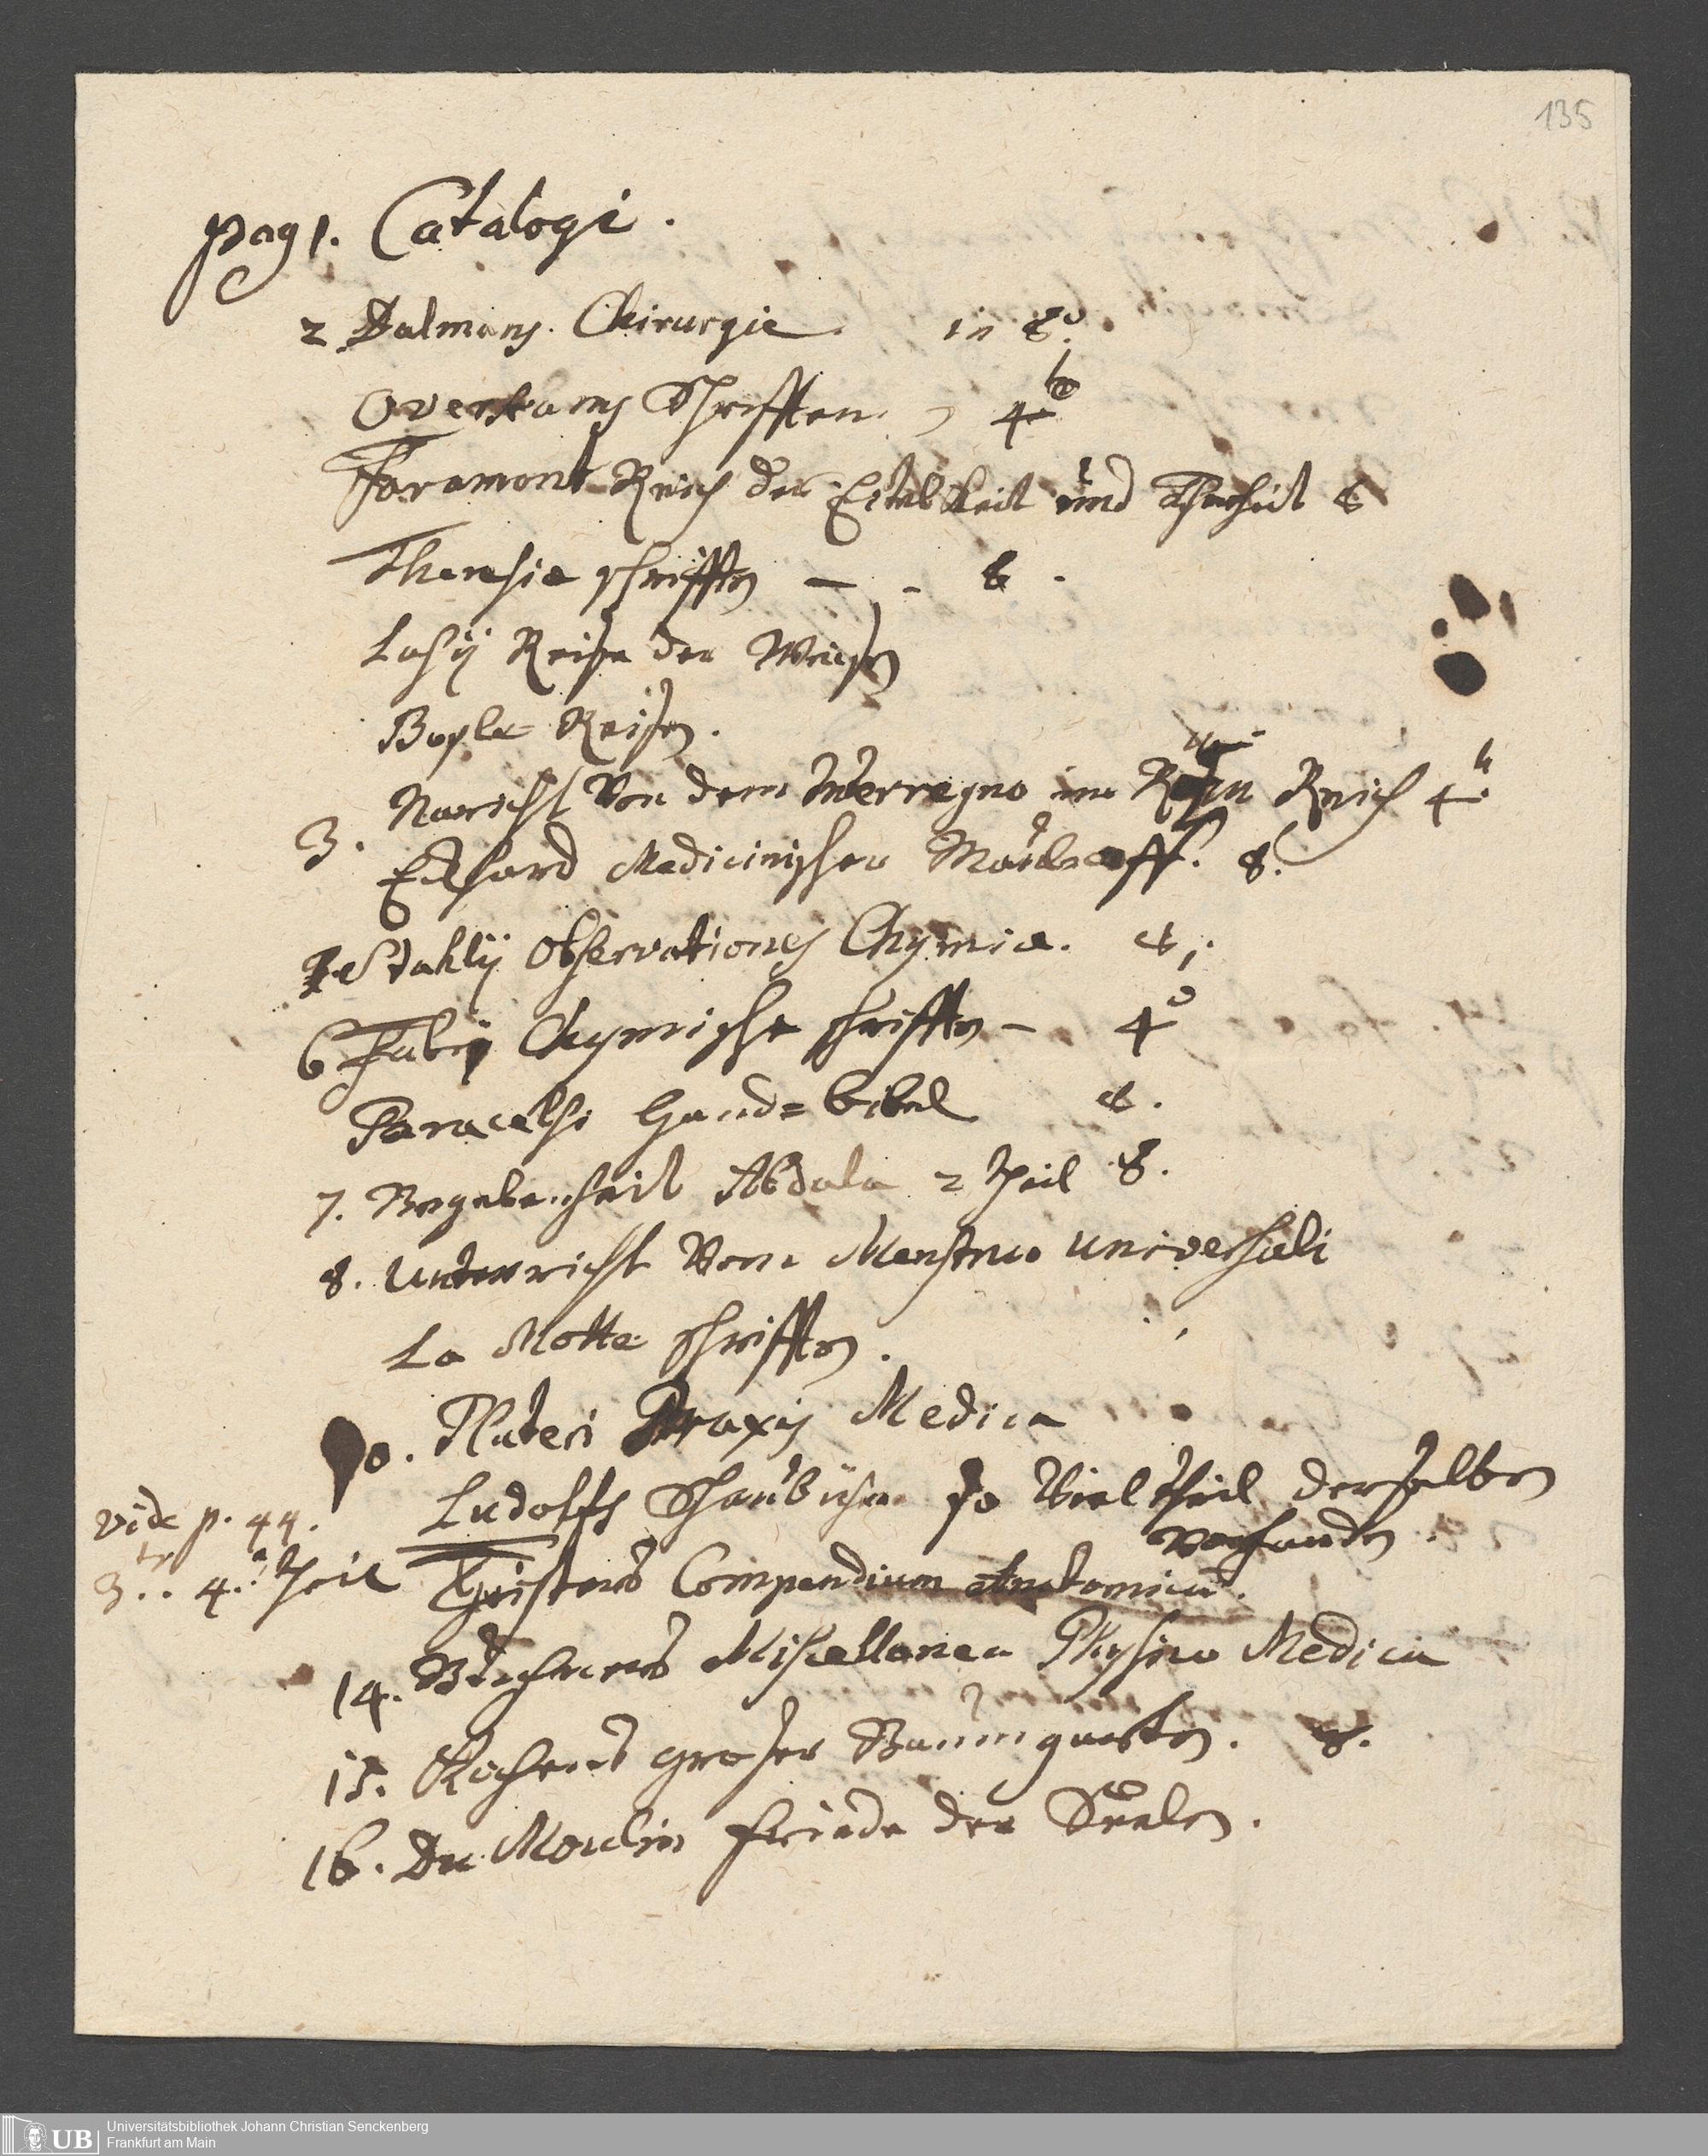 135
pag 1. Catalogi.
2 Dalmans. Chirurgie. in 8°.
Overkams Schrifften. 4to
Faramont Reich der Eitelkeit und Thorheit 8
Theresie schrifften — - 8.
Lasÿ Reise der Weisen
Boyle Reisen.
3. Naericht Von dem Interregno im Reich 4.
Eckhard Medicinischer Maulaff. 8.
Stahlÿ Observationes Chymiæ. 8.
6 Fabrÿ Chymische schrifften — 4°
Paracelsi Hand=bibel 8.
7. Begebenheit Abdala 2 theil 8.
8. Unterricht Vom Menstruo universali
La Motte schrifften.
10. Plateri Praxis Medica
Ludolffs Schaubühne so Viel theil derselben
vorhanden.
vide p. 44.
3.. 4.. theil
Heisters Compendium Anatomicum.
14. Büchners Miscellanea Physico Medica
15. Kochens groser Baumgarten. 8.
16. Du Moulin friede der Seelen.
UB Universitätsbibliothek Johann Christian Senckenberg
Frankfurt am Main